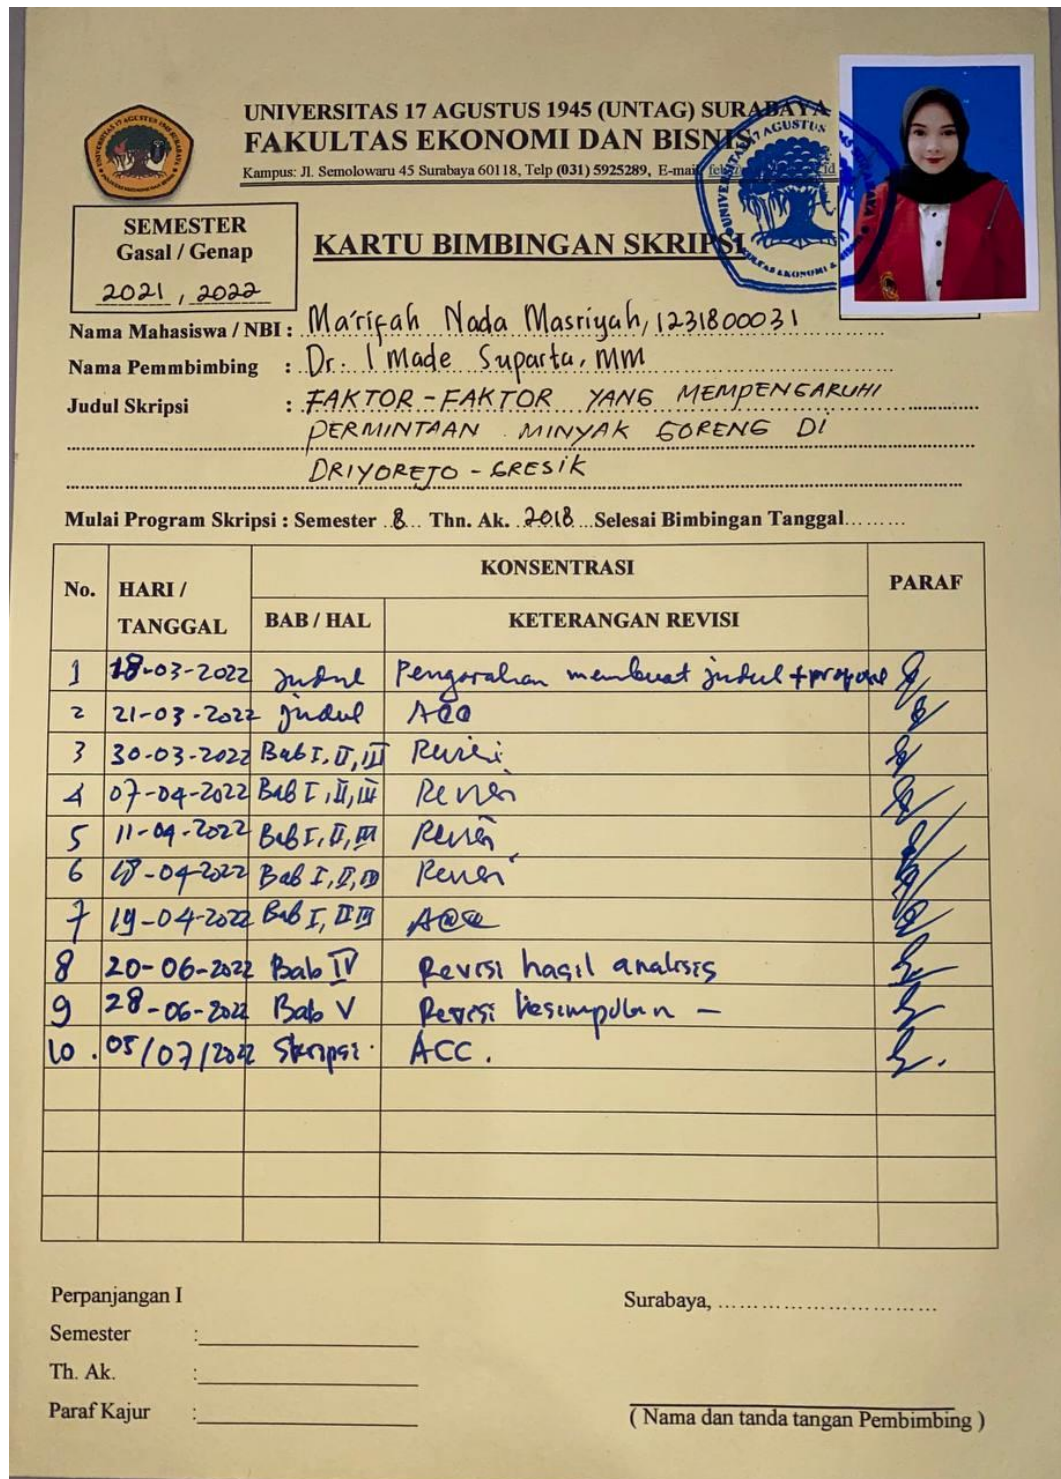 UNIVERSITAS 17 AGUSTUS 1945 (UNTAG) SURABAYA
FAKULTAS EKONOMI DAN BISNIS
Kampus: Jl. Semolowaru 45 Surabaya 60118, Telp (031) 5925289, E-mail
SEMESTER
Gasal / Genap
2021 , 2022
KARTU BIMBINGAN SKRIPSI
Nama Mahasiswa / NBI : Ma'rifah Nada Masriyah, 1231800031
Nama Pemmbimbing : Dr. I Made Suparta, MM
Judul Skripsi : FAKTOR - FAKTOR YANG MEMPENGARUHI
PERMINTAAN MINYAK GORENG DI
DRIYOREJO - GRESIK
Mulai Program Skripsi : Semester 8 Thn. Ak. 2018 Selesai Bimbingan Tanggal.........
No. HARI / TANGGAL KONSENTRASI PARAF
BAB / HAL KETERANGAN REVISI
1 18-03-2022 judul Pengarahan membuat judul +
2 21-03-2022 judul ACC
3 30-03-2022 Bab I, II, III Revisi
4 07-04-2022 Bab I, II, III Revisi
5 11-04-2022 Bab I, II, III Revisi
6 18-04-2022 Bab I, II, III Revisi
7 19-04-2022 Bab I, II III ACC
8 20-06-2022 Bab IV Revisi hasil analisis
9 28-06-2022 Bab V Revisi kesimpulan -
10. 05/07/2022 Skripsi. ACC.
Perpanjangan I
Surabaya, ................................
Semester :
Th. Ak. :
Paraf Kajur :
( Nama dan tanda tangan Pembimbing )